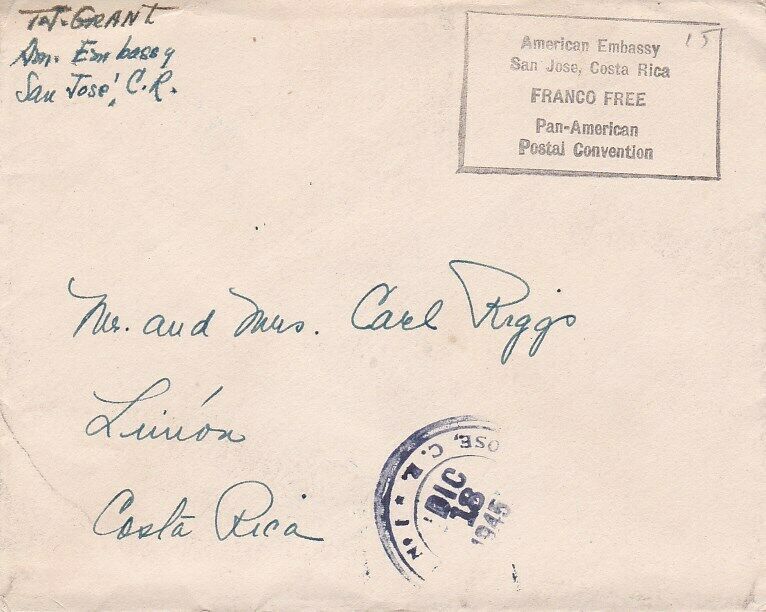 T.J. GRANT
Am. Embassy
San José, C.R.
15
American Embassy
San Jose, Costa Rica
FRANCO FREE
Pan-American
Postal Convention
Mr. and Mrs. Carl Riggs
Limón
Costa Rica
OSE, C. R. * Nº 1
DIC
18
1945